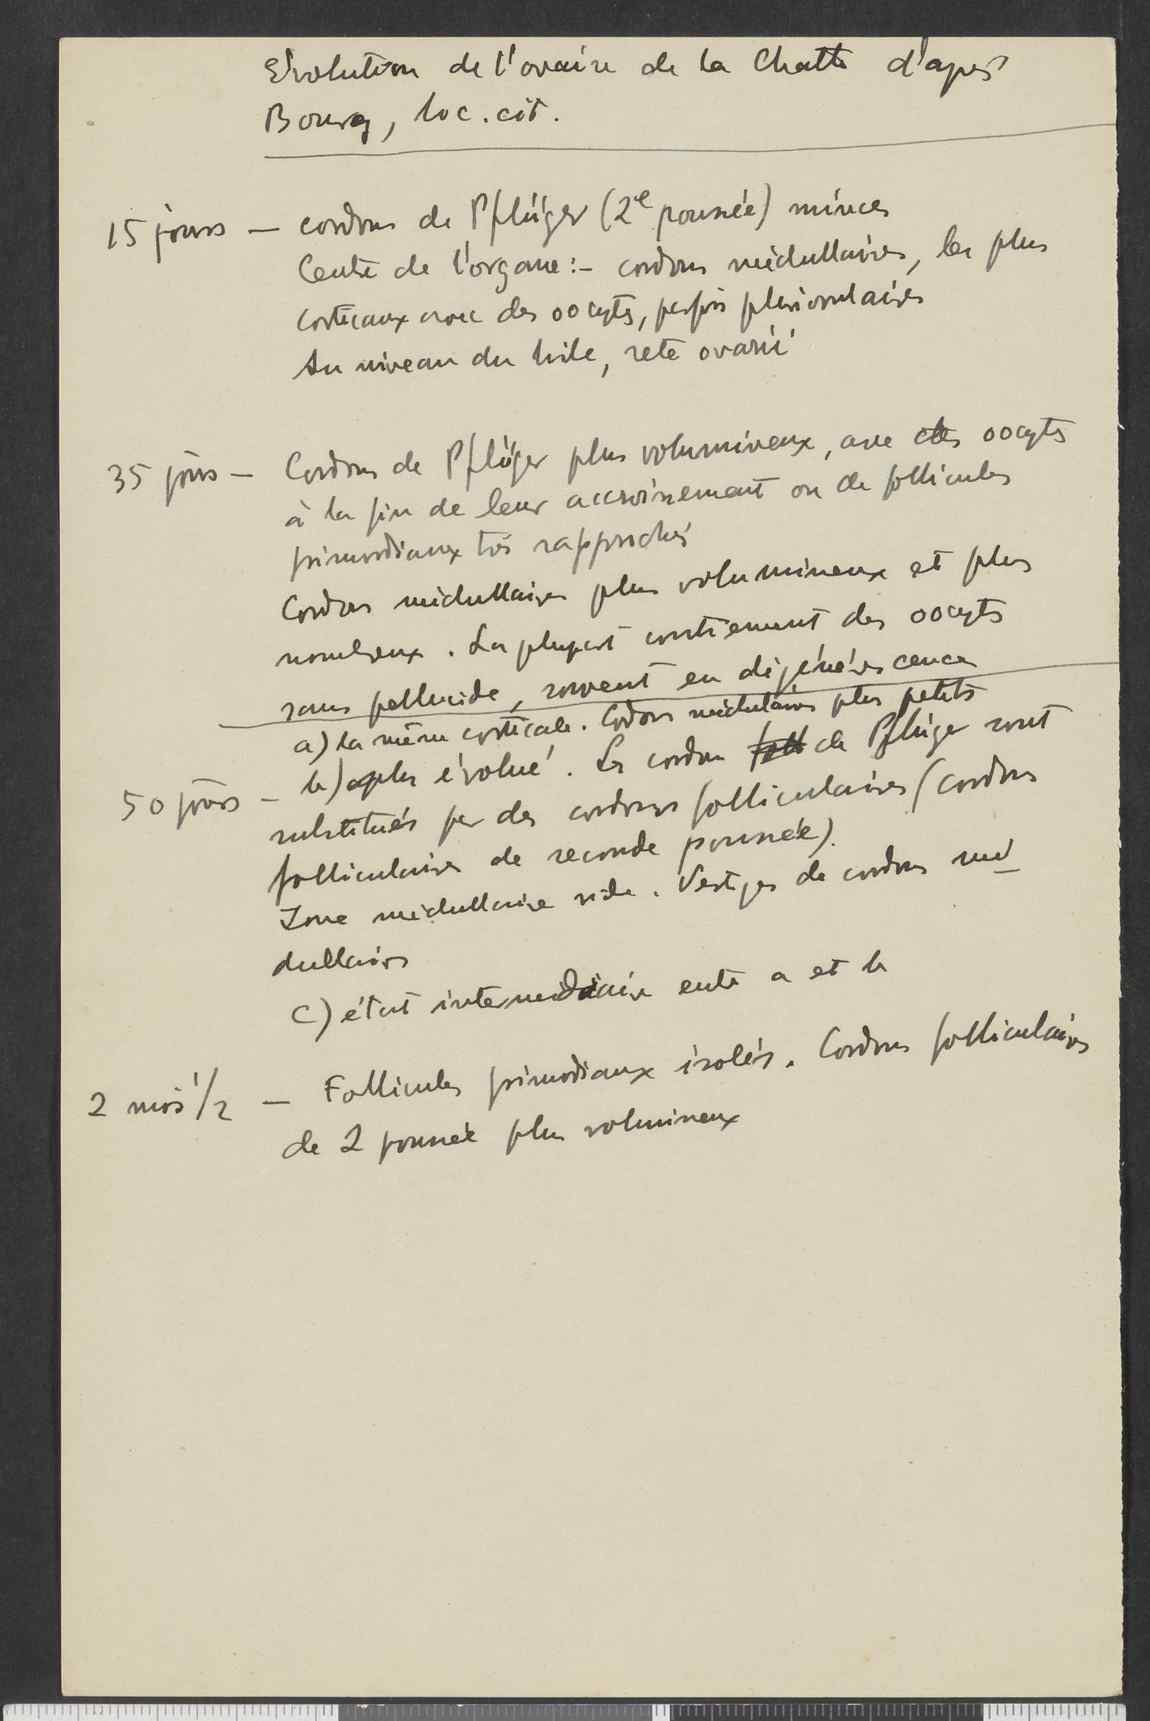 Evolution de l'ovaire de la Chatte d'après
Bourg, loc. cit.
15 jours — cordons de Pflüger (2e poussée) minces
Centre de l'organe :- cordons médullaires, les plus
corticaux avec des oocytes, parfois pluriovulaires
Au niveau du hile, rete ovarii
35 jours — Cordons de Pflüger plus volumineux, avec des oocytes
à la fin de leur accroissement ou de follicules
primordiaux très rapprochés
Cordons médullaires plus volumineux et plus
nombreux. La plupart contiennent des oocytes
sans pellucide, souvent en dégénérescence
a) la même corticale. Cordons médullaires plus petits
50 jours — b) plus évolué. Les cordons de Pflüger sont
substitués par des cordons folliculaires (cordons
folliculaires de seconde poussée).
Zone médullaire vide. Vestiges de cordons mé
dullaires
c) état intermédiaire entre a et b
2 mois 1/2 — Follicules primordiaux isolés. Cordons folliculaires
de 2 poussée plus volumineux